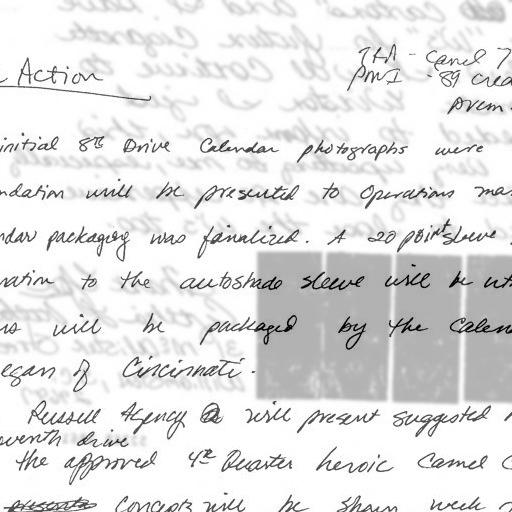 TKA - Camel 7
Action
PMI - '89 Crea
prem.
initial 8th Drive Calendar photographs were
ndation will be presented to Operations ma
ndar packaging was finalized. A 20 point sleeve
mation to the autoshade sleeve will be ut
ns will be packaged by the Calen
egan of Cincinnati.
Russell Agency will present suggested
eventh drive
the approved 4th Quarter heroic Camel C
presents Concepts will be shown week